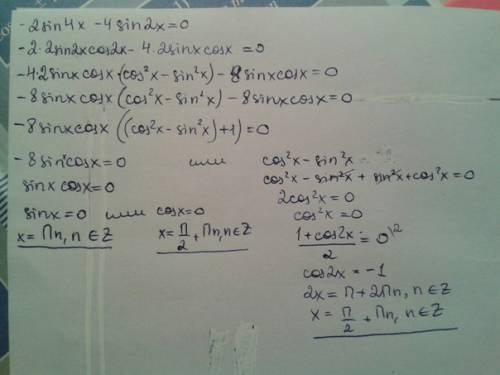 -2sin4x -4sin2x=0
-2·2sin2xcos2x- 4·2sinxcosx =0
-4·2sinxcosx·(cos²x-sin²x)- 8sinxcosx=0
-8sinxcosx(cos²x-sin²x)-8sinxcosx=0
-8sinxcosx((cos²x-sin²x)+1)=0
-8sinxcosx=0 или cos²x-sin²x=
sinx cosx=0 cos²x-sin²x+sin²x+cos²x=0
2cos²x=0
sinx=0 или cosx=0 cos²x=0
x=Пn, n∈Z x=П/2+Пn, n∈Z (1+cos2x)/2=0 |·2
cos2x=-1
2x=П+2Пn, n∈Z
x=П/2+Пn, n∈Z